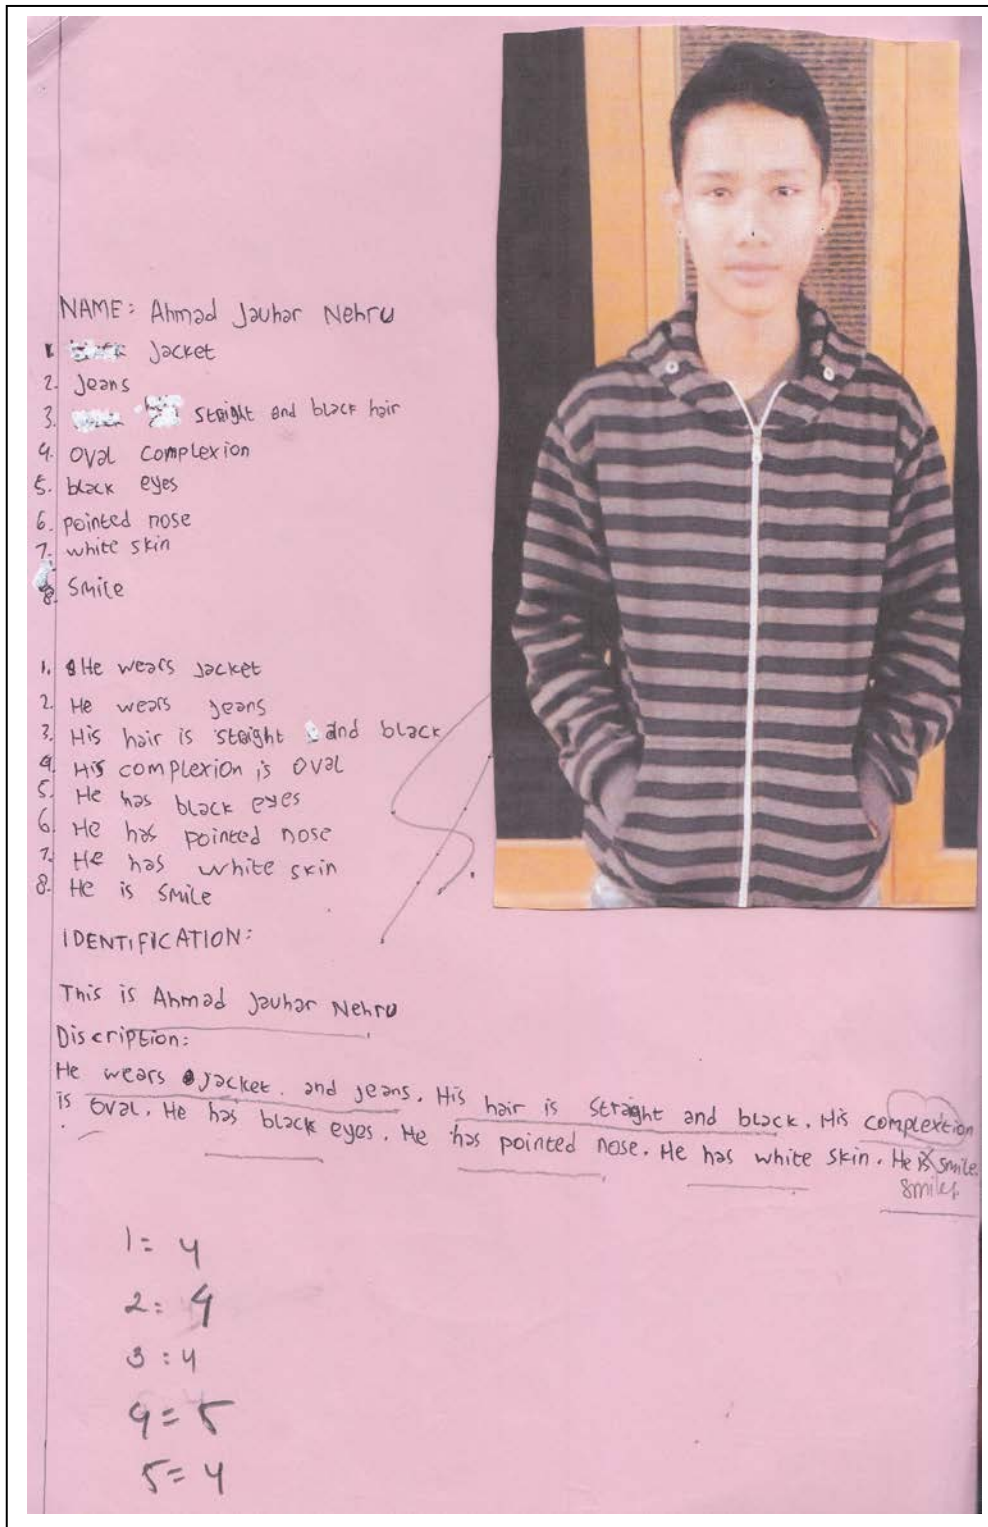 NAME: Ahmad Jauhar Nehru
1. Jacket
2. Jeans
3. staight and black hair
4. oval complexion
5. black eyes
6. pointed nose
7. white skin
8. smile
1. He wears Jacket
2. He wears jeans
3. His hair is staight and black
4. His complexion is oval
5. He has black eyes
6. He has pointed nose
7. He has white skin
8. He is smile
IDENTIFICATION:
This is Ahmad Jauhar Nehru
Discription:
He wears jacket. and jeans. His hair is straght and black. His complextion
is oval. He has black eyes. He has pointed nose. He has white skin. He is smile.
smiles
1= 4
2: 4
3 : 4
4= 5
5= 4